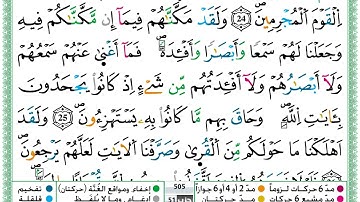 ٱلۡقَوۡمَ ٱلۡمُجۡرِمِينَ 24 وَلَقَدۡ مَكَّنَّٰهُمۡ فِيمَآ إِن مَّكَّنَّٰكُمۡ فِيهِ
وَجَعَلۡنَا لَهُمۡ سَمۡعٗا وَأَبۡصَٰرٗا وَأَفۡـِٔدَةٗ فَمَآ أَغۡنَىٰ عَنۡهُمۡ سَمۡعُهُمۡ
وَلَآ أَبۡصَٰرُهُمۡ وَلَآ أَفۡـِٔدَتُهُم مِّن شَيۡءٍ إِذۡ كَانُواْ يَجۡحَدُونَ
بِـَٔايَٰتِ ٱللَّهِ وَحَاقَ بِهِم مَّا كَانُواْ بِهِۦ يَسۡتَهۡزِءُونَ 25 وَلَقَدۡ
أَهۡلَكۡنَا مَا حَوۡلَكُم مِّنَ ٱلۡقُرَىٰ وَصَرَّفۡنَا ٱلۡأٓيَٰتِ لَعَلَّهُمۡ يَرۡجِعُونَ
مدّ 6 حركات لزوماً مدّ 2 أو 4 أو 6 جوازاً 505 إخفاء، ومواقع الغُنَّة (حركتان) تفخيم
مدّ مشبع 6 حركات مدّ حركتان إدغام، وما لا يُلفَظ قلقلة